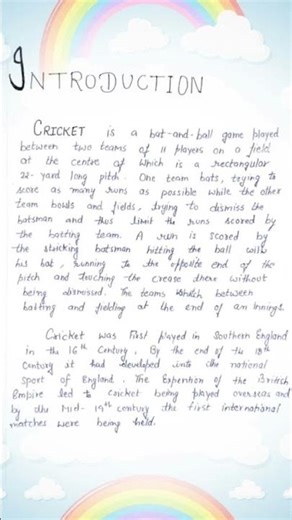 INTRODUCTION
CRICKET is a bat-and-ball game played
between two teams of 11 players on a field
at the centre of which is a rectangular
22-yard long pitch. One team bats, trying to
score as many runs as possible while the other
team bowls and fields, trying to dismiss the
batsman and thus limit the runs scored by
the batting team. A run is scored by
the striking batsman hitting the ball with
his bat, running to the opposite end of the
pitch and touching the crease there without
being dismissed. The teams switch between
batting and fielding at the end of an innings.
Cricket was first played in Southern England
in the 16th Century. By the end of the 18th
Century it had developed into the national
sport of England. The Expention of the British
Empire led to cricket being played overseas and
by the Mid-19th century the first international
matches were being held.